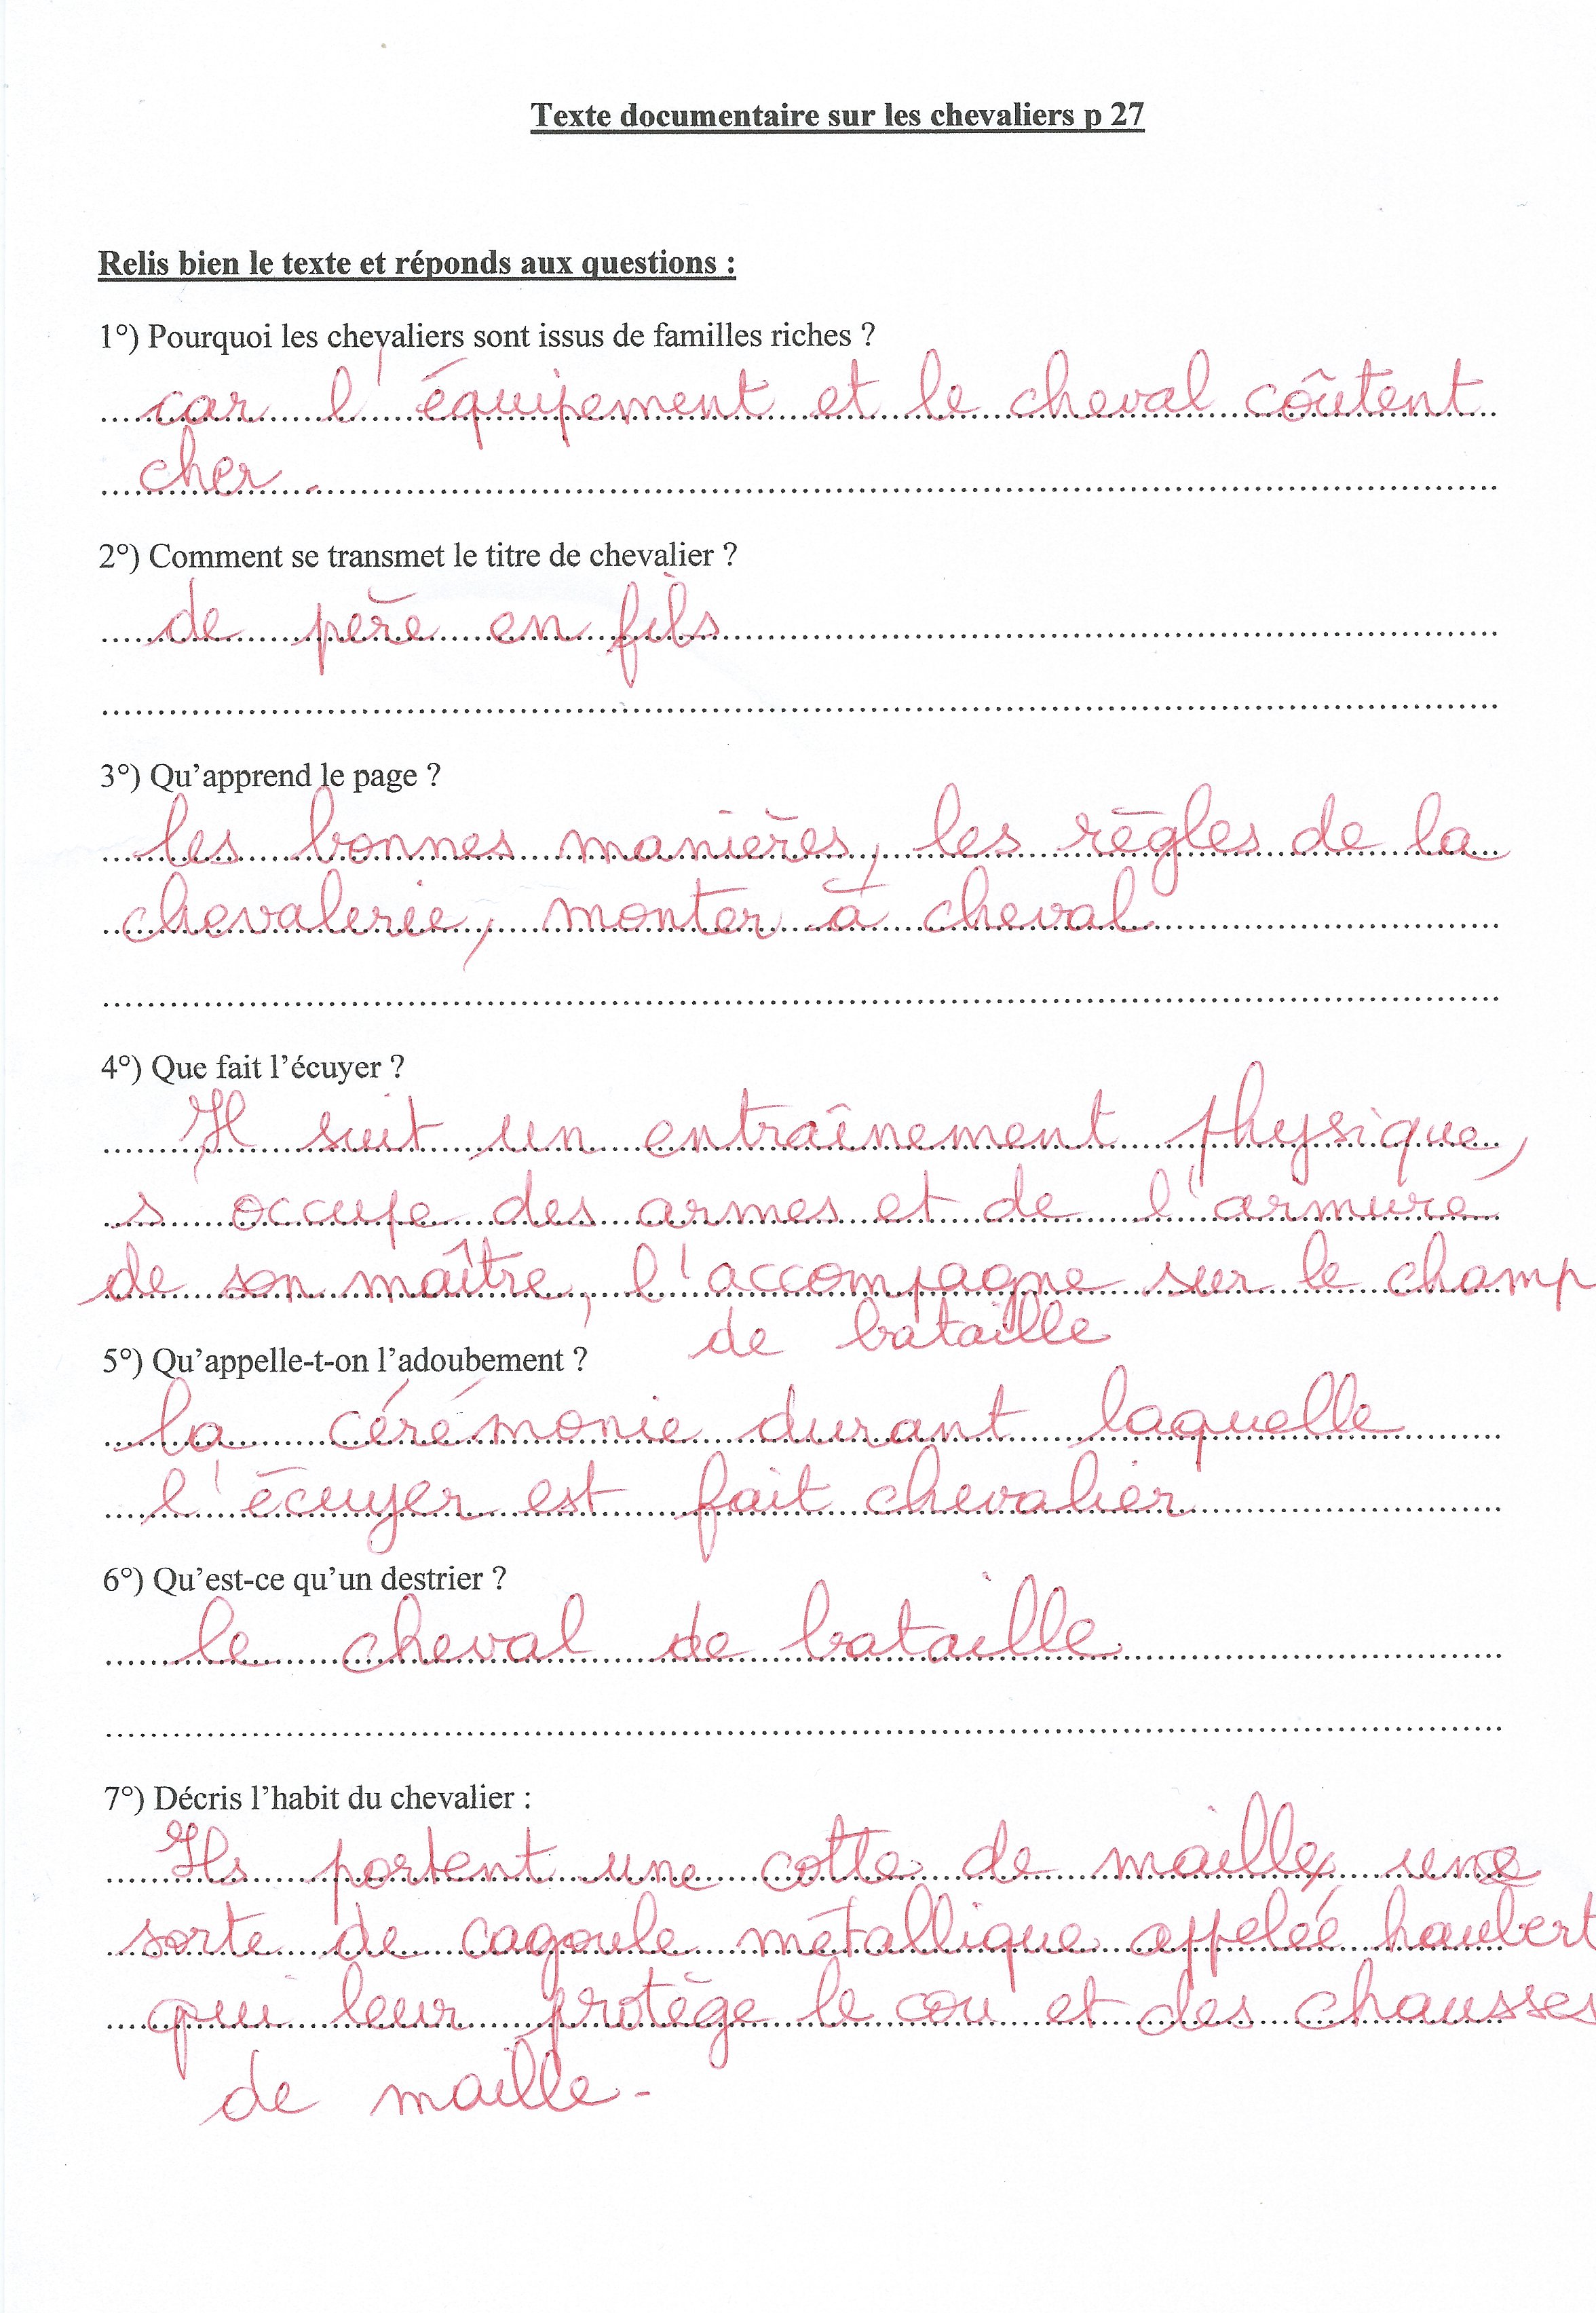 Texte documentaire sur les chevaliers p 27
Relis bien le texte et réponds aux questions :
1°) Pourquoi les chevaliers sont issus de familles riches ?
car l'équipement et le cheval coûtent
cher.
2°) Comment se transmet le titre de chevalier ?
de père en fils
3°) Qu'apprend le page ?
les bonnes manières, les règles de la
chevalerie, monter à cheval
4°) Que fait l'écuyer ?
Il suit un entraînement physique,
s'occupe des armes et de l'armure
de son maître, l'accompagne sur le champ
de bataille
5°) Qu'appelle-t-on l'adoubement ?
la cérémonie durant laquelle
l'écuyer est fait chevalier
6°) Qu'est-ce qu'un destrier ?
le cheval de bataille
7°) Décris l'habit du chevalier :
Ils portent une cotte de maille, une
sorte de cagoule métallique appelée haubert
qui leur protège le cou et des chausses
de maille.